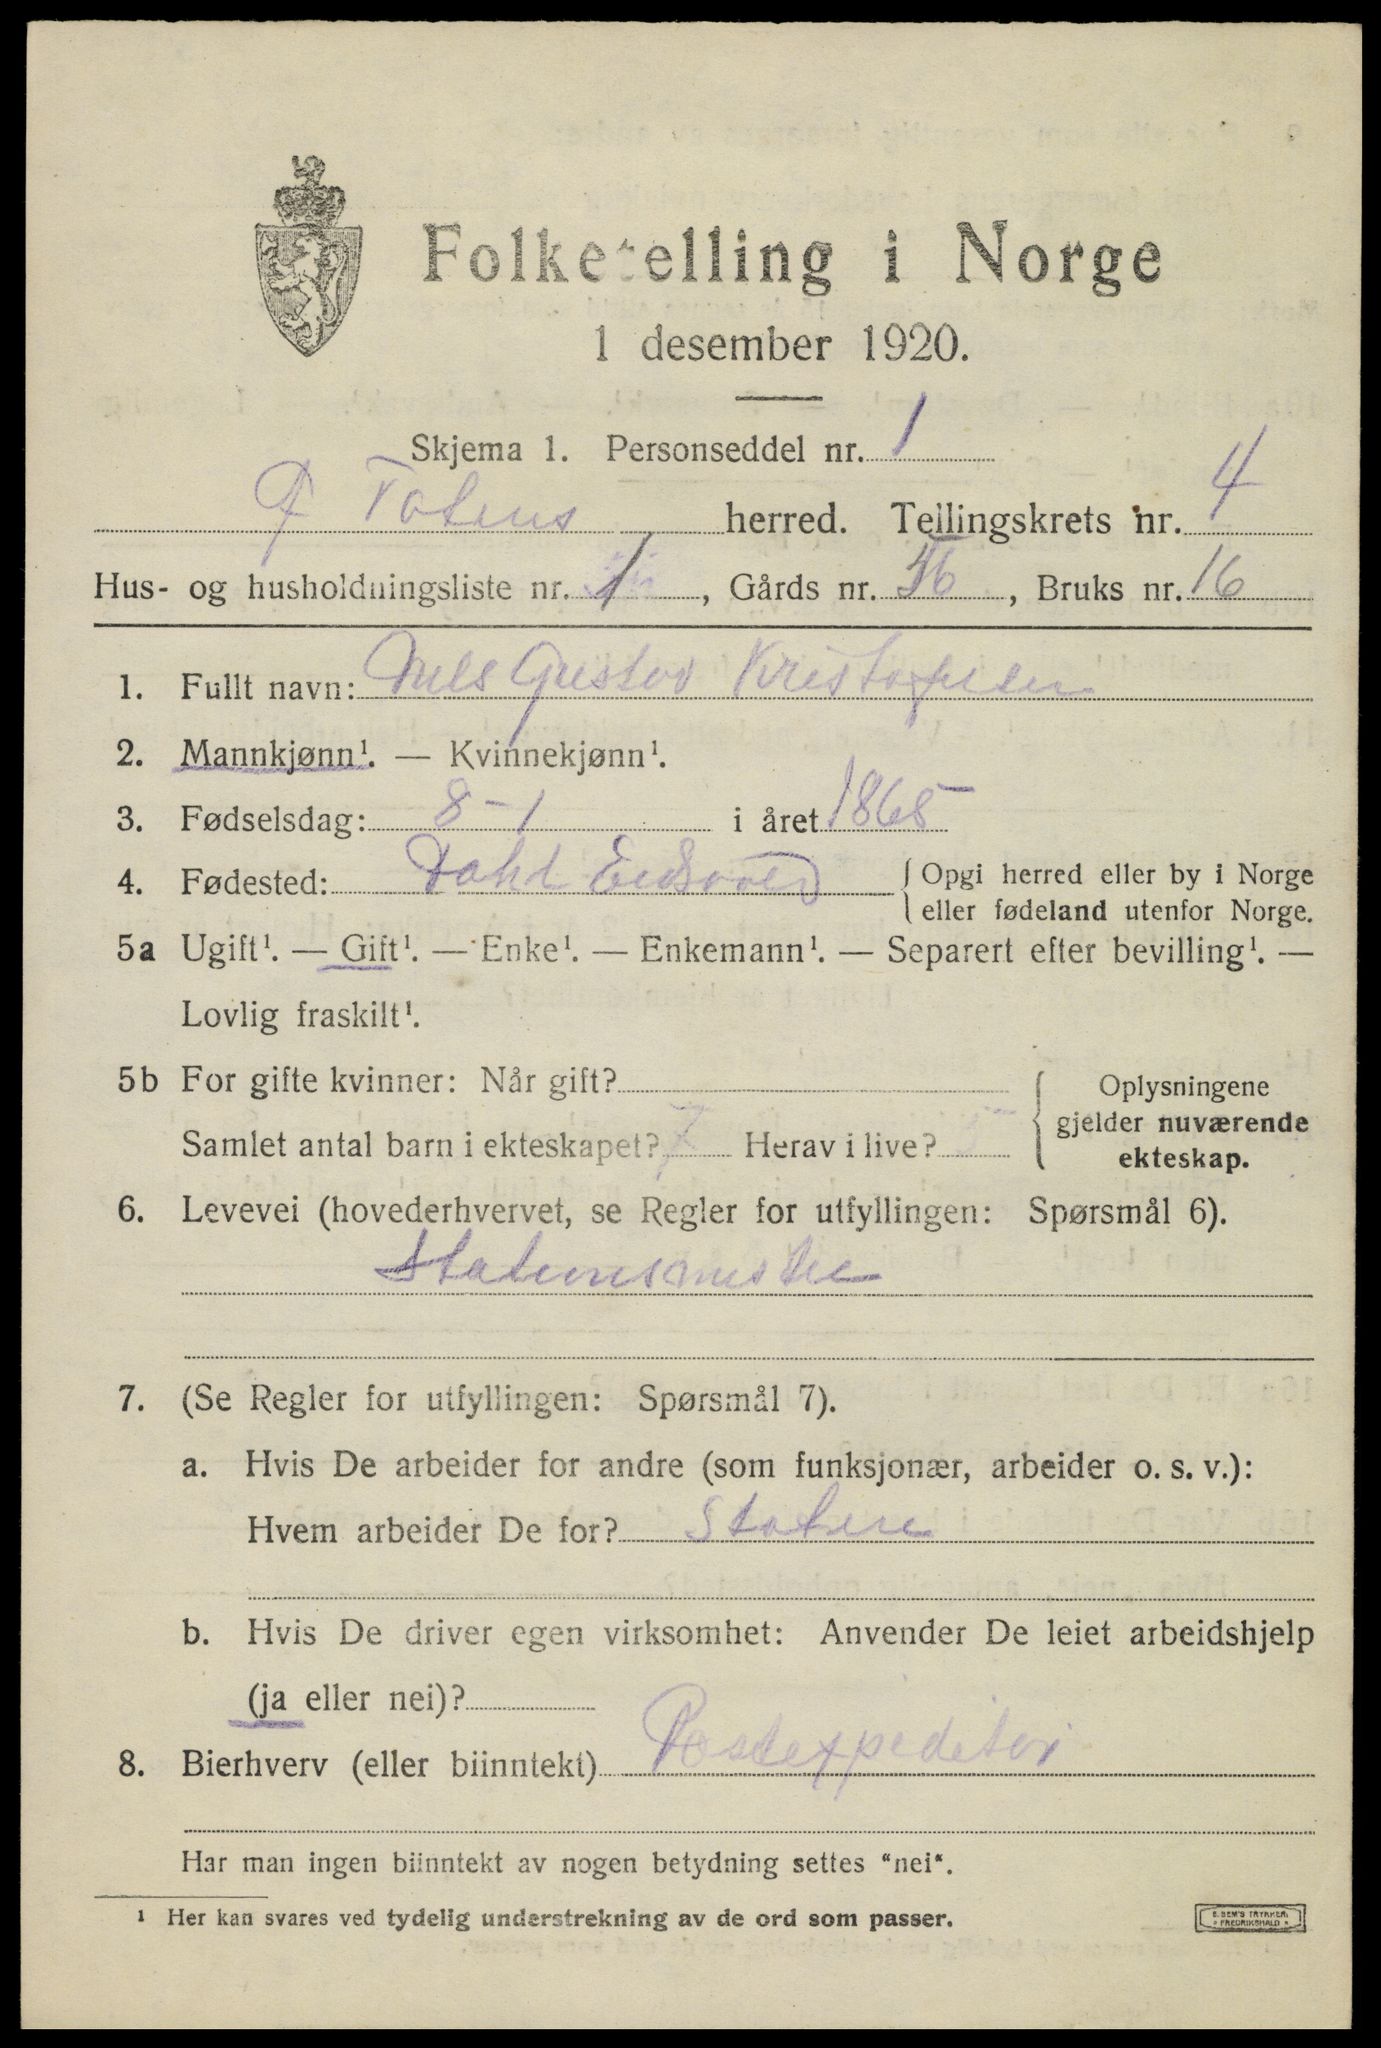 Folketelling i Norge
1 desember 1920.
Skjema 1. Personseddel nr. 1
Ø Totens herred. Tellingskrets nr. 4
Hus- og husholdningsliste nr. 1, Gårds nr. 56, Bruks nr. 16
1. Fullt navn: Nils Gustav Kristofersen
2. Mannkjønn¹. — Kvinnekjønn¹.
3. Fødselsdag: 8-1 i året 1865
4. Fødested: Dahl Eidsvold
Opgi herred eller by i Norge
eller fødeland utenfor Norge.
5a Ugift¹. — Gift¹. — Enke¹. — Enkemann¹. — Separert efter bevilling¹. —
Lovlig fraskilt¹.
5b For gifte kvinner: Når gift?
Samlet antal barn i ekteskapet? 7 Herav i live? 5
Oplysningene
gjelder nuværende
ekteskap.
6. Levevei (hovederhvervet, se Regler for utfyllingen: Spørsmål 6).
Stationsmester
7. (Se Regler for utfyllingen: Spørsmål 7).
a. Hvis De arbeider for andre (som funksjonær, arbeider o. s. v.):
Hvem arbeider De for? Staten
b. Hvis De driver egen virksomhet: Anvender De leiet arbeidshjelp
(ja eller nei)?
8. Bierhverv (eller biinntekt) Postexpeditør
Har man ingen biinntekt av nogen betydning settes "nei".
¹ Her kan svares ved tydelig understrekning av de ord som passer.
E. SEM'S TRYKKERI
FREDRIKSHALD